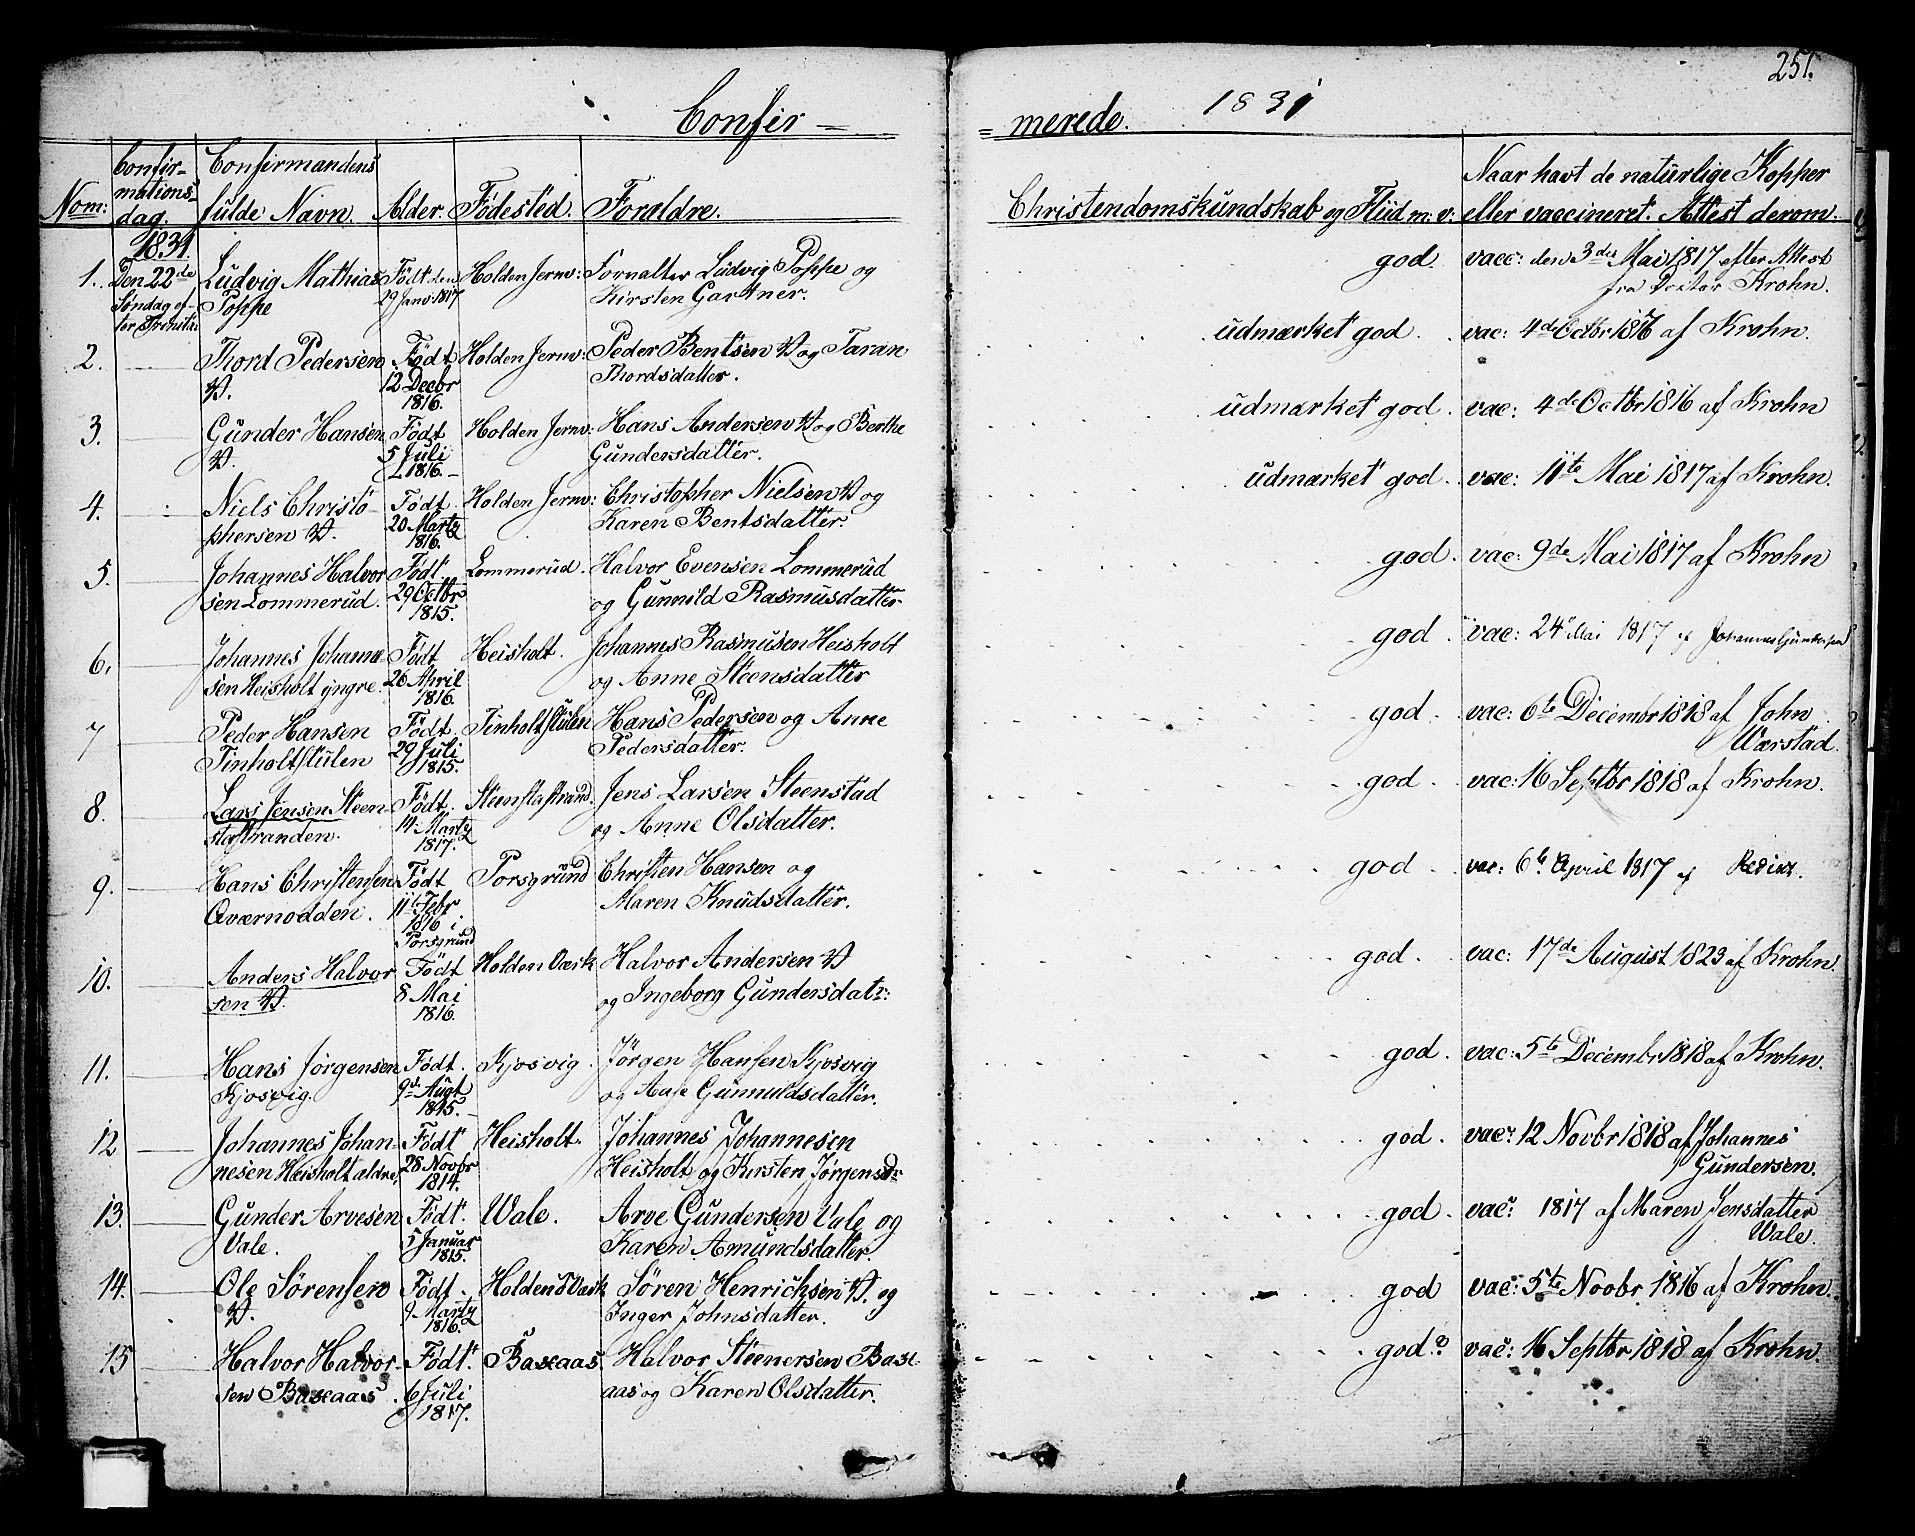 251.
Confir- = merede. 1831
Nom: Confir-mations-dag. Confirmandens fulde Navn. Alder. Fødested. Forældre. Christendomskundskab og Fliid m: v: Naar havt de naturlige Kopper eller vaccineret. Attest derom.
1831.
1. Den 22de Ludvig Mathias Født den Holden Jernv: Forvalter Ludvig Poppe og god. vacc: den 3die Mai 1817 efter Attest
Søndag ef- Poppe 29 Janv: 1817 Kirsten Gartner. fra Doctor Krohn.
ter Trinita:
2. Thord Pedersen Født Holden Jernv: Peder Bentsen V og Taran udmærket god. vac: 4de Octbr 1816 af Krohn.
V. 12 Decbr Thordsdatter.
1816.
3. Gunder Hansen Født Holden Jernv: Hans Andersen V og Berthe udmærket god. vac: 4de Octbr 1816 af Krohn
V. 5 Juli Gundersdatter.
1816.
4. Niels Christo- Født Holden Jernv: Christopher Nielsen V og udmærket god. vac: 11te Mai 1817 af Krohn.
phersen V. 20 Martz Karen Bentsdatter.
1816.
5. Johannes Halvor Født Lommerud. Halvor Evensen Lommerud god. vac: 9de Mai 1817 af Krohn
sen Lommerud. 29 Octbr og Gunnild Rasmusdatter
1815.
6. Johannes Johanne- Født Heisholt. Johannes Rasmusen Heisholt god. vac: 24 Mai 1817 af Johannes Gundersen
sen Heisholt yngre. 26 April og Anne Steensdatter
1816.
7 Peder Hansen Født Tinholtstulen Hans Pedersen og Anne god. vac: 6te Decembr 1818 af John
Tinholtstulen 29 Juli Pedersdatter. Værstad.
1815.
8. Lars Jensen Steen- Født Steenstastrand. Jens Larsen Steenstad god. vac: 16 Septbr 1818 af Krohn.
stastranden. 14 Martz og Anne Olsdatter.
1817.
9. Hans Christensen Født Porsgrund Christen Hansen og god. vac: 6te April 1817 af
Qværnodden. 11 Febr Maren Knudsdatter.
1816 i
Porsgrund
10. Anders Halvor Født Holden Værk Halvor Andersen V god. vac: 17de August 1823 af Krohn.
sen V. 8 Mai og Ingeborg Gundersdatr:
1816.
11. Hans Jørgensen Født Kjosvig. Jørgen Hansen Kjosvig god. vac: 5te Decembr 1818 af Krohn.
Kjosvig. 9de Augt og Aase Gunnuldsdatter.
1815.
12 Johannes Johan- Født Heisholt. Johannes Johannesen god. vac: 12 Novbr 1818 af Johannes
nesen Heisholt ældre, 28 Novbr Heisholt og Kirsten Jørgensdr Gundersen.
1814.
13. Gunder Arvesen Født Wale. Arve Gundersen Vale og god. vac: 1817 af Maren Jensdatter
Vale. 5 Januar Karen Amundsdatter. Wale.
1815.
14. Ole Sørensen Født Holdens Værk Søren Henrichsen V. og god vac: 5te Novbr. 1816 af Krohn.
V. 9 Martz Inger Johnsdatter.
1816.
15 Halvor Halvor- Født Baxaas. Halvor Steenersen Bax- god. vac: 16 Septbr 1818 af Krohn.
sen Baxaas. 6 Juli aas og Karen Olsdatter.
1817.